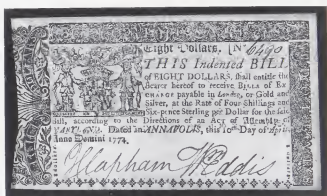 Eight Dollars. [No 6490
THIS Indented BILL
of EIGHT DOLLARS, shall entitle the
Bearer hereof to receive BILLS of EX-
CHANGE payable in London, or Gold and
Silver, at the Rate of Four Shillings and
Six-pence Sterling per Dollar for the said
Bill, according to the Directions of an Act of Assembly of
MARYLAND. Dated in ANNAPOLIS, this 10th Day of April,
Anno Domini 1774.
J Clapham Wm Eddis